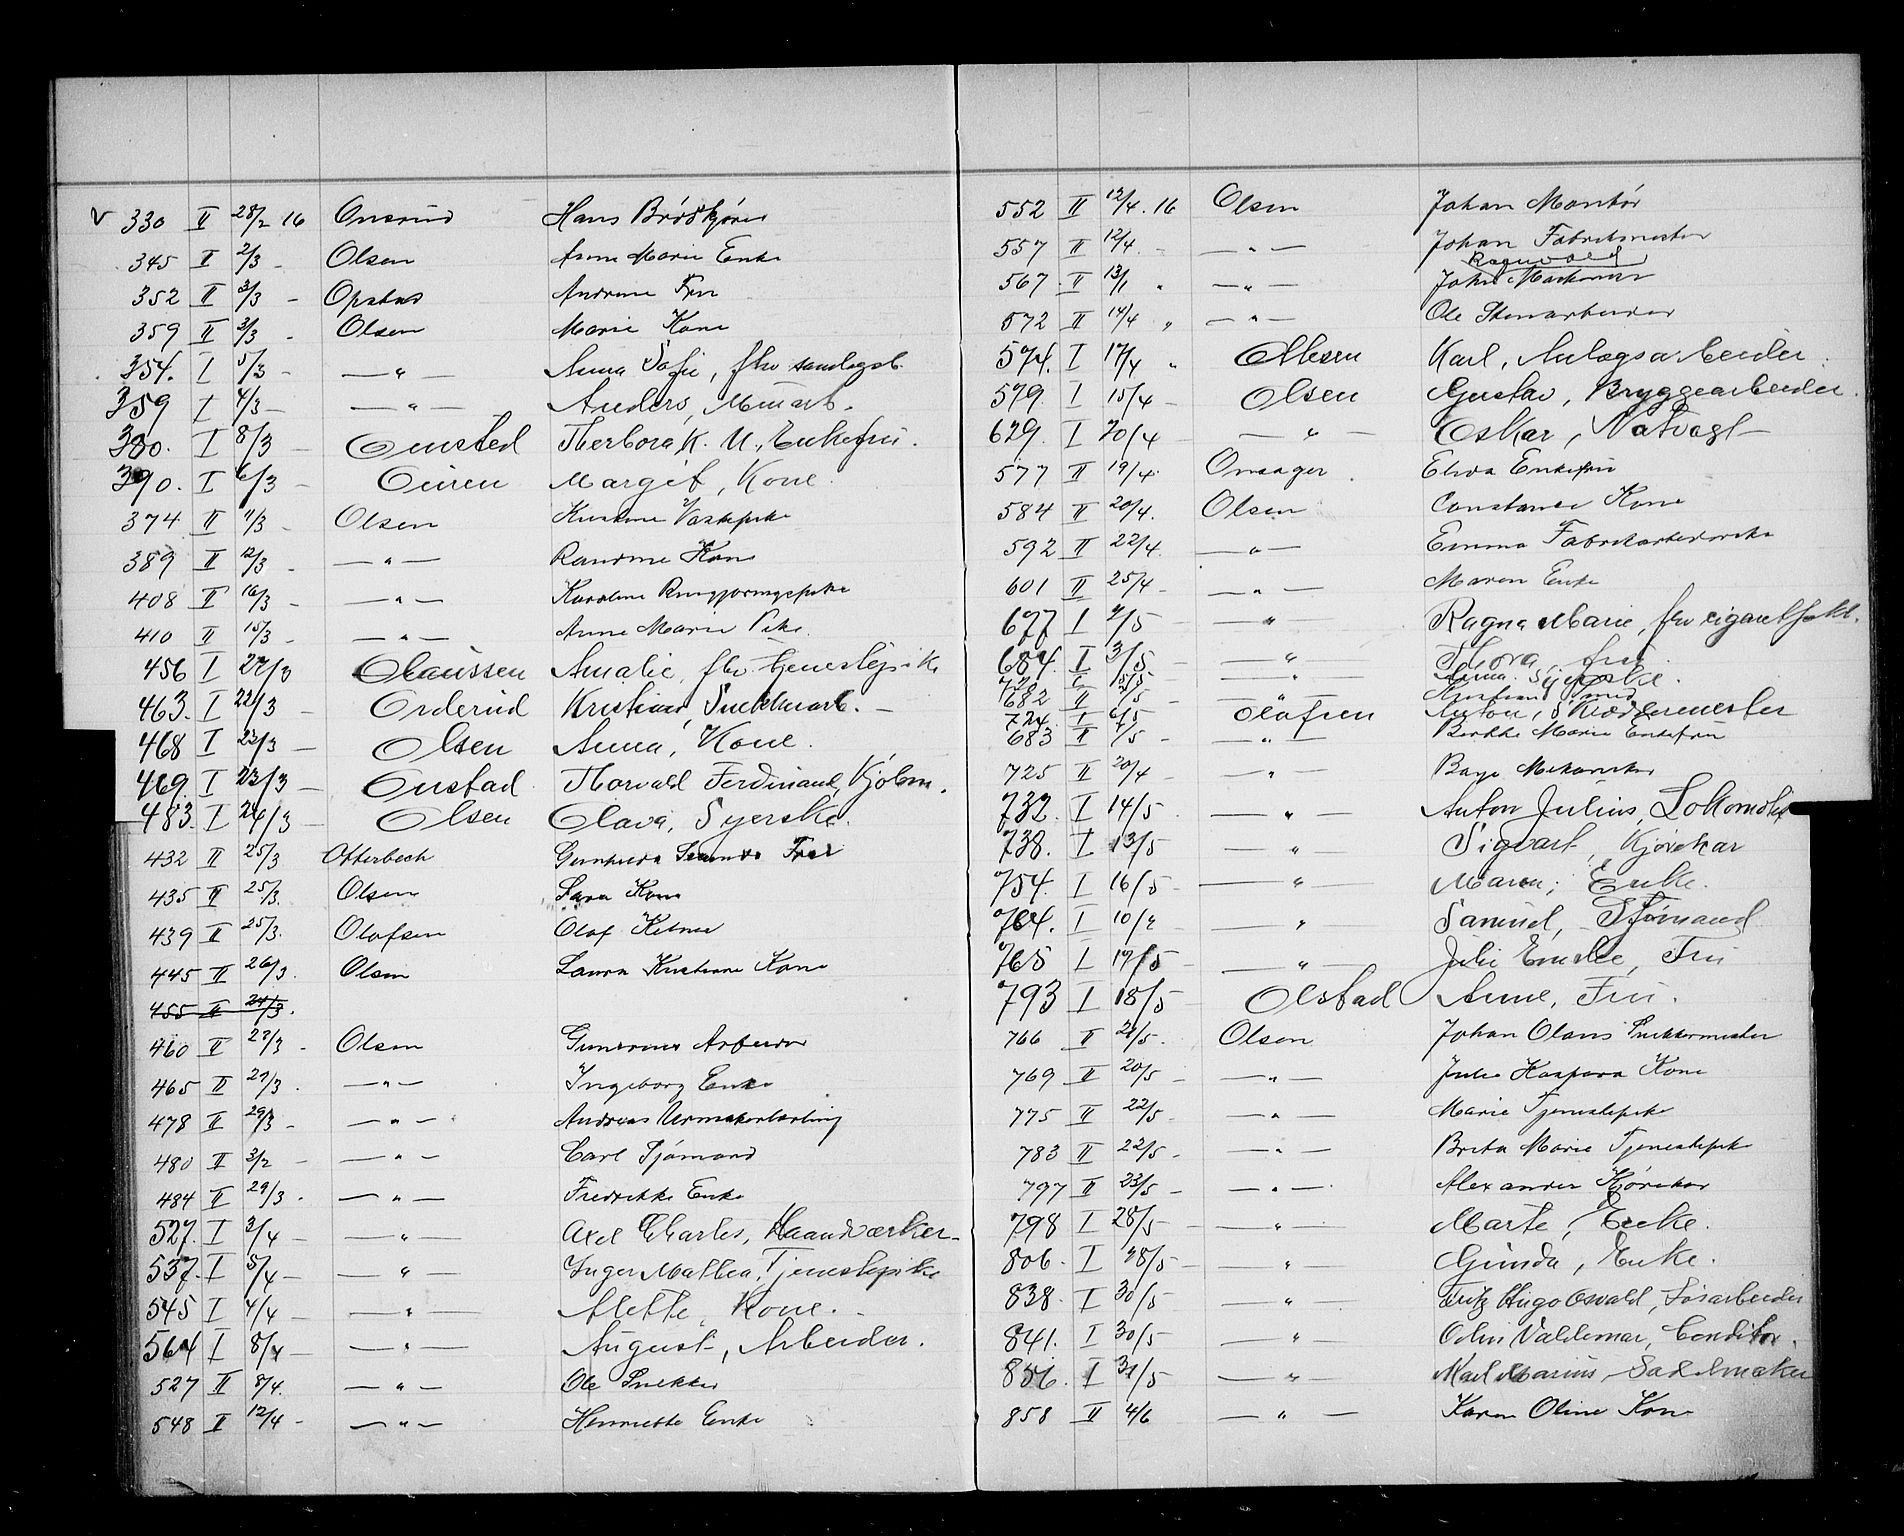 V 330 II 28/2 16 Onsrud Hans Brödkjörer
345 II 2/3 - Olsen Anne Marie Enke
352 II 3/3 - Opstad Andrine Fru
359 II 3/3 - Olsen Marie Kone
354. I 5/3 - —"— Anna Sofie, fhv
359 I 4/3 - —"— Anders, Murarb.
380. I 8/3 - Onsted K. M., Enkefru.
390. I 6/3 - Margit, Kone.
374 II 11/3 - Olsen Kristine Vaskepike
389 II 12/3 - —"— Randine Kone
408 II 16/3 - —"— Karoline Rengjøringspike
410 II 15/3 - —"— Anne Marie Pike
456 I 22/3 Olaussen Amalie, fhv. tjenestepike
463. I 22/3 - Orderud Kristian, Snekkerarb. -
468 I 22/3 - Olsen Anna, Kone.
469. I 23/3 - Onstad Thorvald Ferdinand, Kjøbm.
483. I 24/3 - Olsen Olava, Syerske.
432 II 25/3 Otterbech Fru
435 II 25/3. Olsen Lava Kone
439 II 25/3. Olafsen Olaf Kelner
445 II 26/3. Olsen Laura Kristiane Kone
455 II 24/3.
460 II 27/3 - Olsen Arbeider
465 II 27/3. —"— Ingeborg Enke
478 II 29/3 - —"— Andreas Urmakerlærling
480 II 3/2 - —"— Carl Sjömand
484 II 29/3. —"— Fredrikke Enke
527. I 3/4 - —"— Axel Charles, Haandværker -
537. I 5/4 - —"— Inger Mathea, Tjenestepike
545 I 4/4 - —"— Alette, Kone. -
564 I 8/4 - —"— August, Arbeider.
527 II 8/4. —"— Ole Snekker
548 II 12/4 - —"— Henriette Enke
552 II 12/4. 16 Olsen Johan Montör
557 II 12/4 - —"— Johan Fabrikmester
Ragnvald
567 II 13/1 " —"— John Maskinist
572 II 14/4 " —"— Ole Stenarbeider
574. I 17/4 " Olsen Karl, Anlægsarbeider.
579. I 15/4 - Olsen Gustav, Bryggearbeider.
629. I 20/4 —"— Oskar, Natvagt -
577 II 19/4. Onsager Elida Enkefru
584 II 20/4. Olsen Constance Kone
592 II 22/4. —"— Emma Fabrikarbeiderske
601 II 25/4 - —"— Maren Enke
677 I 2/5 - —"— Ragna Marie, fhv cigaretfabr.
684. I 3/5 - —"— Thora, fru
—"— Anna. Syerske.
682 II 5/5 - —"— Kristian Smed
724. I 6/5 Olafsen Anton, Skræddermester
683 II 1/5 - —"— Berthe Marie Enkefru
725 II 20/4 - —"— Mekaniker
732. I 14/5 - —"— Anton Julius, Lokomotivf
738. I 13/5 —"— Sigvart, Kjørekar
754. I 16/5 - —"— Maren, Enke.
764. I 10/5 - " Samuel, Sjømand
765 I 19/5 - —"— Julie Emilie, Fru
793 I 18/5 - Olstad Anne, Fru.
766 II 21/5. Olsen Johan Olaus Snekkermester
769 II 20/5 - —"— Julie Kaspara Kone
775 II 22/5 - —"— Marie Tjenestepike
783 II 22/5 - —"— Brita Marie Tjenestepike
797 II 23/5 - —"— Alexander Kjörekar
798 I 28/5 - —"— Marte, Enke.
806. I 28/5 - " Gunda, Enke.
838. I 30/5 —"— Fritz Hugo Osvald, Løsarbeider
841. I 30/5 —"— Odin Valdemar, Conditor.
856. I 31/5 —"— Karl Marius, Sadelmaker
858 II 4/6 —"— Karen Oline Kone